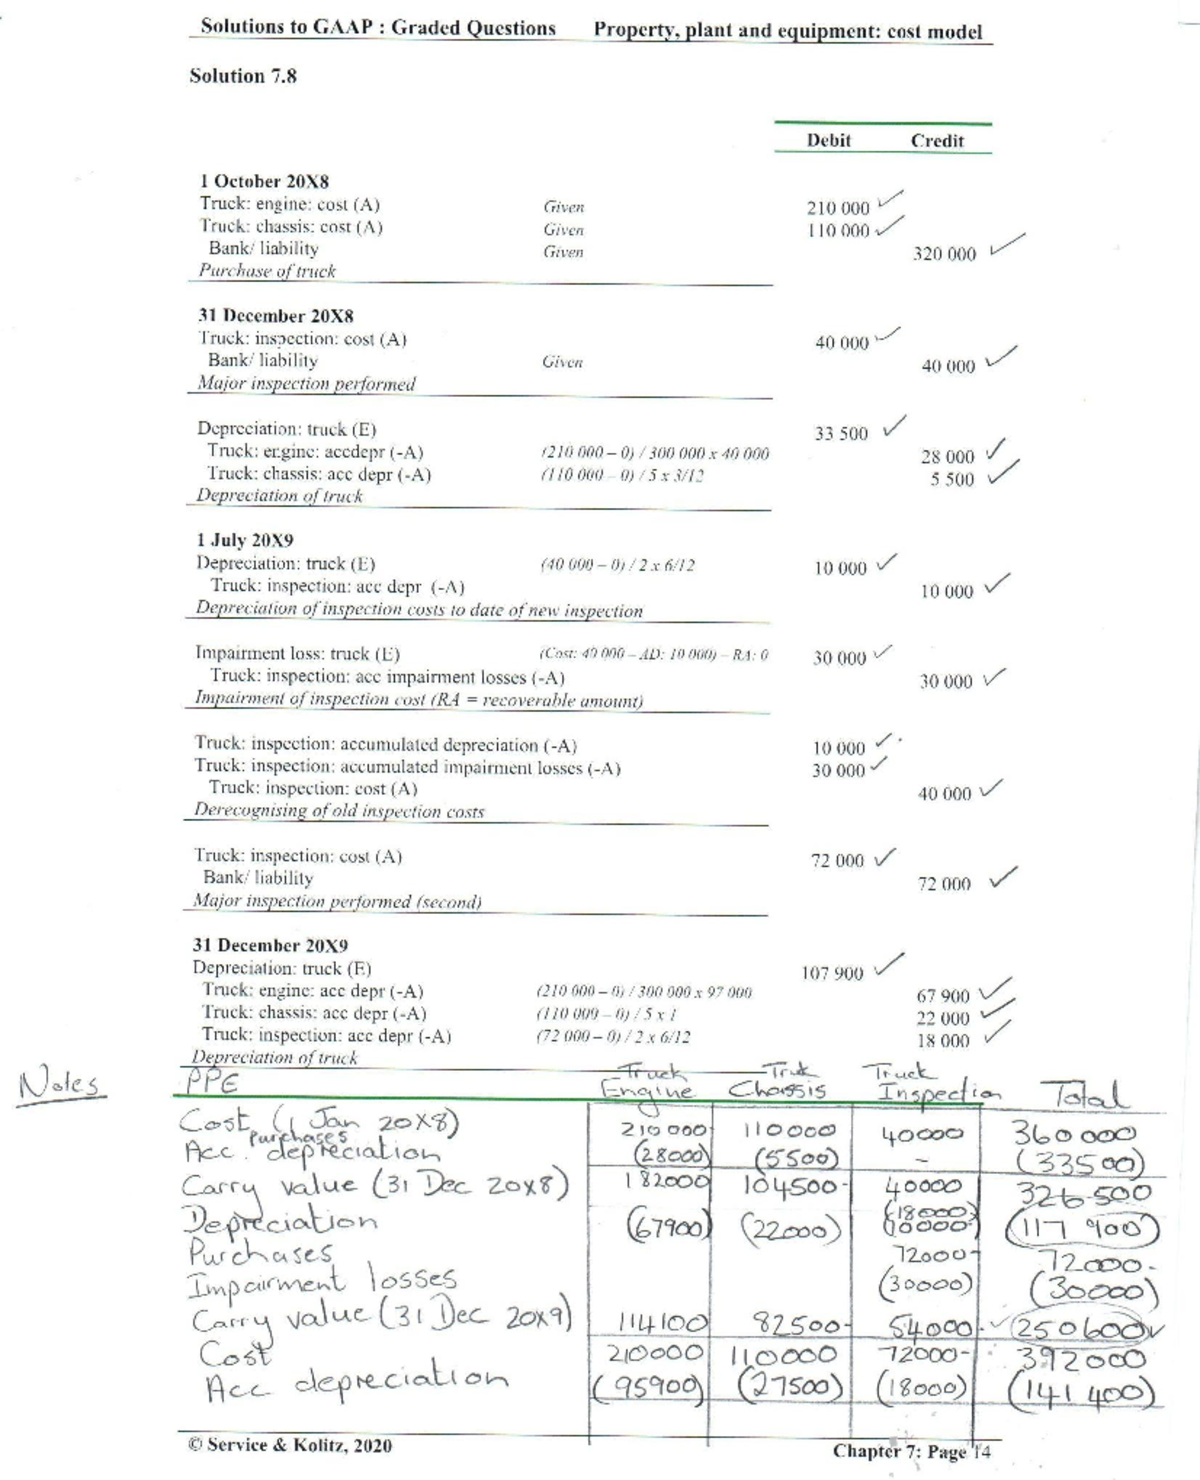 Solutions to GAAP : Graded Questions Property, plant and equipment: cost model
Solution 7.8
Debit Credit
1 October 20X8
Truck: engine: cost (A) Given 210 000 ✓
Truck: chassis: cost (A) Given 110 000 ✓
Bank/ liability Given 320 000 ✓
Purchase of truck
31 December 20X8
Truck: inspection: cost (A) 40 000 ✓
Bank/ liability Given 40 000 ✓
Major inspection performed
Depreciation: truck (E) 33 500 ✓
Truck: engine: accdepr (-A) (210 000 – 0) / 300 000 x 40 000 28 000 ✓
Truck: chassis: acc depr (-A) (110 000 – 0) / 5 x 3/12 5 500 ✓
Depreciation of truck
1 July 20X9
Depreciation: truck (E) (40 000 – 0) / 2 x 6/12 10 000 ✓
Truck: inspection: acc depr (-A) 10 000 ✓
Depreciation of inspection costs to date of new inspection
Impairment loss: truck (E) (Cost: 40 000 – AD: 10 000) – RA: 0 30 000 ✓
Truck: inspection: acc impairment losses (-A) 30 000 ✓
Impairment of inspection cost (RA = recoverable amount)
Truck: inspection: accumulated depreciation (-A) 10 000 ✓
Truck: inspection: accumulated impairment losses (-A) 30 000 ✓
Truck: inspection: cost (A) 40 000 ✓
Derecognising of old inspection costs
Truck: inspection: cost (A) 72 000 ✓
Bank/ liability 72 000 ✓
Major inspection performed (second)
31 December 20X9
Depreciation: truck (E) 107 900 ✓
Truck: engine: acc depr (-A) (210 000 – 0) / 300 000 x 97 000 67 900 ✓
Truck: chassis: acc depr (-A) (110 000 – 0) / 5 x 1 22 000 ✓
Truck: inspection: acc depr (-A) (72 000 – 0) / 2 x 6/12 18 000 ✓
Depreciation of truck
Notes PPE Truck Engine Truk Chassis Truck Inspection Total
Cost (1 Jan 20X8) purchases 210 000 110000 40000 360 000
Acc. depreciation (28000) (5500) – (33500)
Carry value (31 Dec 20X8) 182000 104500- 40000 326 500
Depreciation (67900) (22000) (18000) (10000) (117 900)
Purchases 72000- 72000-
Impairment losses (30000) (30000)
Carry value (31 Dec 20X9) 114100 82500- 54000- ✓ (250600 ✓
Cost 210000 110000 72000- 392000
Acc depreciation (95900) (27500) (18000) (141 400)
© Service & Kolitz, 2020 Chapter 7: Page 14